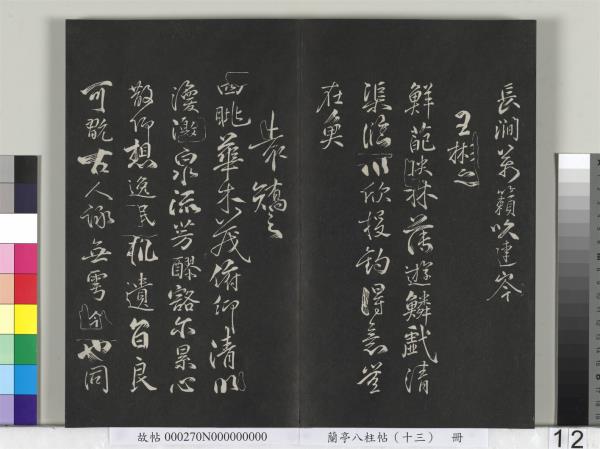 長澗萬籟吹連峯
王彬之
鮮葩映林薄遊鱗戲清
渠臨川欣投釣得意豈
在魚
袁嶠之
四眺華林茂俯仰清川
渙激泉流芳醪豁尔累心
散仰想逸民軌遺音良
可翫古人詠無雩今也同
故帖 000270N000000000
蘭亭八柱帖（十三） 冊
12